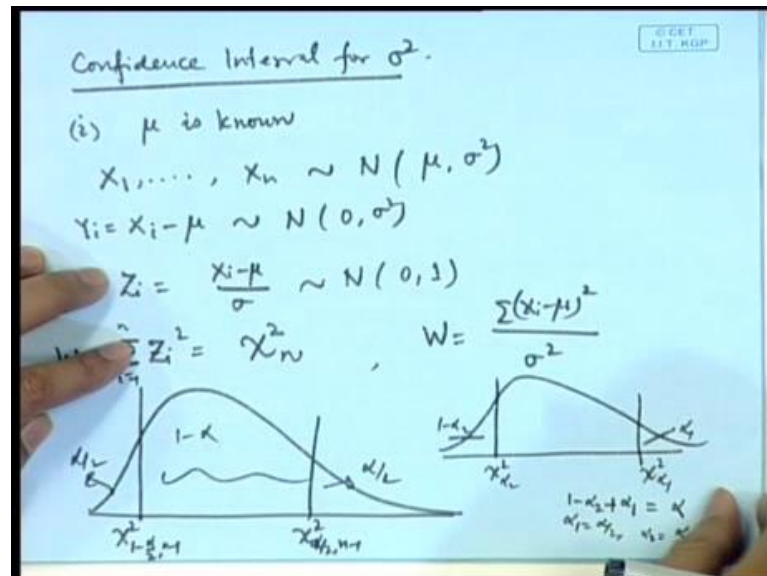 © CET
I.I.T. KGP
Confidence Interval for σ².
(i) μ is known
X₁, ...., Xₙ ~ N( μ, σ²)
Yᵢ = Xᵢ - μ ~ N( 0, σ²)
Zᵢ = (Xᵢ-μ)/σ ~ N( 0, 1)
Zᵢ² = χ²ₙ , W = Σ(Xᵢ-μ)²/σ²
α/2 1-α α/2
χ²_{1-α/2, n-1} χ²_{α/2, n-1}
1-α₂ α₁
χ²_{α₂} χ²_{α₁}
1-α₂+α₁ = α
α₁ = α/2,